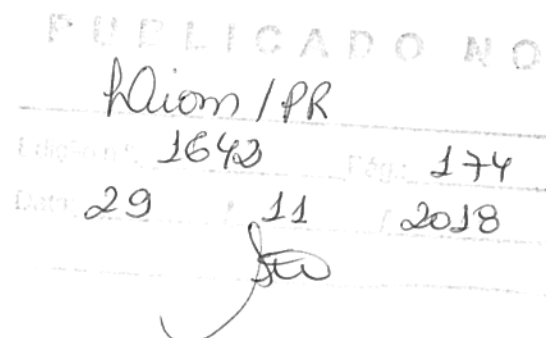 PUBLICADO NO
Diom/PR
Edição nº: 1642 Pág.: 174
Data: 29 / 11 / 2018